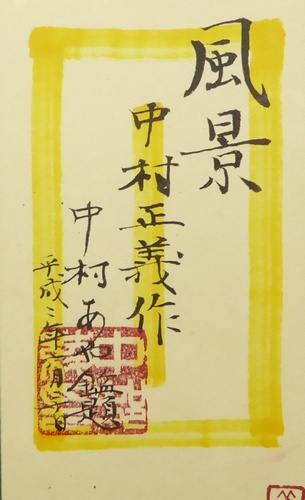 風景
中村正義作
中村あや鑑題
平成三年一月二十日